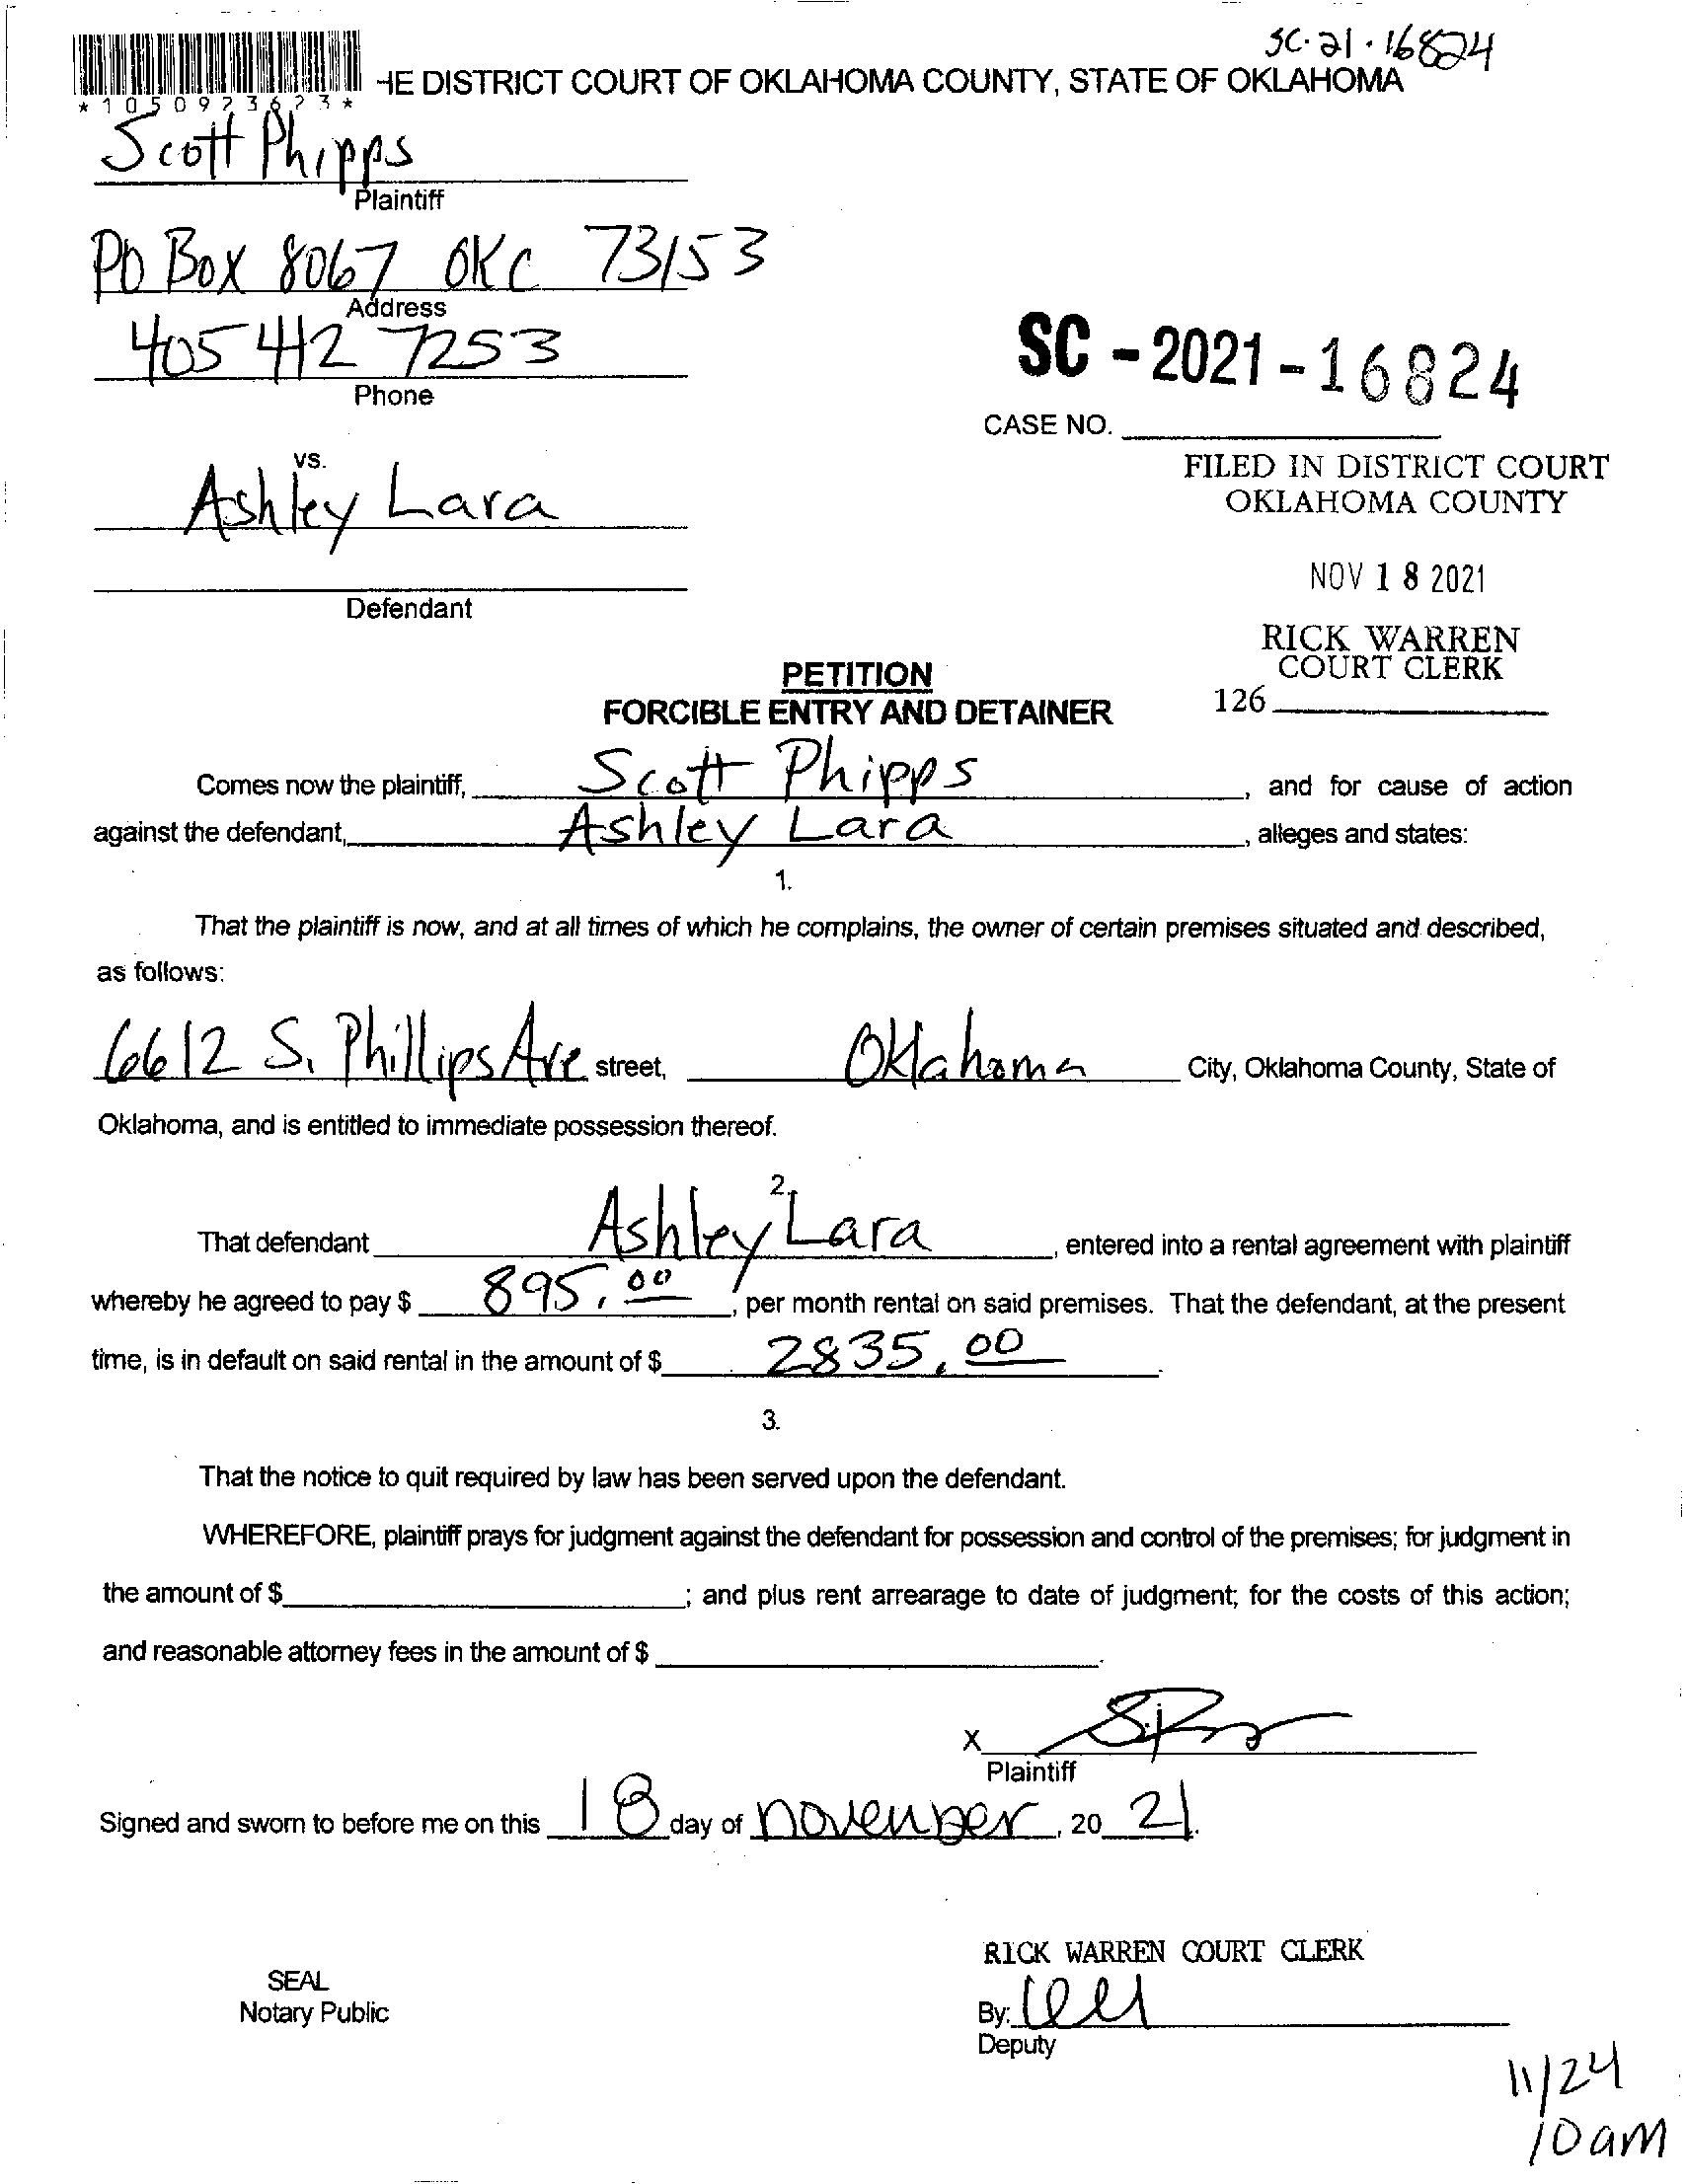 SC-21-16824
HE DISTRICT COURT OF OKLAHOMA COUNTY, STATE OF OKLAHOMA
*1050923623*
Scott Phipps
Plaintiff
PO Box 8067 OKC 73153
Address
405 412 7253
Phone
SC-2021-16824
CASE NO.
vs.
FILED IN DISTRICT COURT
OKLAHOMA COUNTY
Ashley Lara
NOV 18 2021
Defendant
RICK WARREN
COURT CLERK
126
PETITION
FORCIBLE ENTRY AND DETAINER
Comes now the plaintiff, Scott Phipps, and for cause of action
against the defendant, Ashley Lara, alleges and states:
1.
That the plaintiff is now, and at all times of which he complains, the owner of certain premises situated and described,
as follows:
6612 S. Phillips Ave street, Oklahoma City, Oklahoma County, State of
Oklahoma, and is entitled to immediate possession thereof.
2.
That defendant Ashley Lara, entered into a rental agreement with plaintiff
whereby he agreed to pay $ 895.00, per month rental on said premises. That the defendant, at the present
time, is in default on said rental in the amount of $ 2835.00.
3.
That the notice to quit required by law has been served upon the defendant.
WHEREFORE, plaintiff prays for judgment against the defendant for possession and control of the premises; for judgment in
the amount of $ ; and plus rent arrearage to date of judgment; for the costs of this action;
and reasonable attorney fees in the amount of $ .
X
Plaintiff
Signed and sworn to before me on this 18 day of november, 20 21.
RICK WARREN COURT CLERK
SEAL
Notary Public
By:
Deputy
11/24
10am